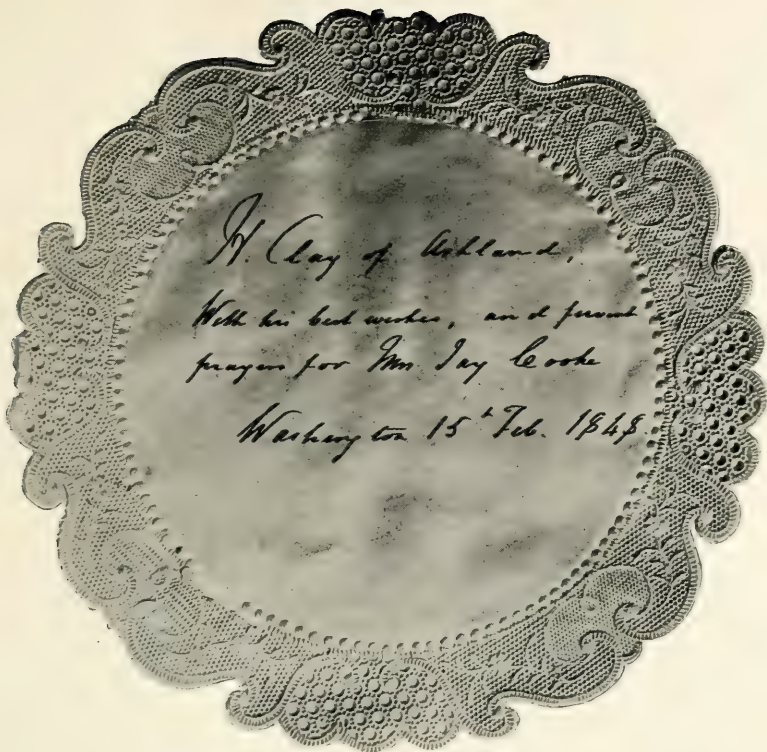 H. Clay of Ashland,
With his best wishes, and fervent
prayers for Mrs Jay Cooke
Washington 15th Feb. 1848